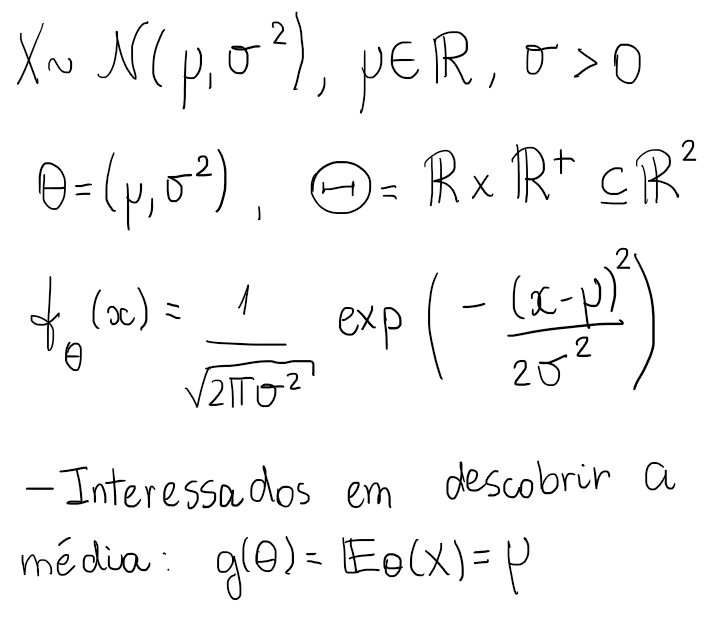 X ~ N(μ, σ²), μ ∈ ℝ, σ > 0
θ = (μ, σ²), Θ = ℝ × ℝ⁺ ⊆ ℝ²
f_θ(x) = 1/√(2πσ²) exp(-(x-μ)²/(2σ²))
- Interessados em descobrir a
média: g(θ) = 𝔼_θ(X) = μ